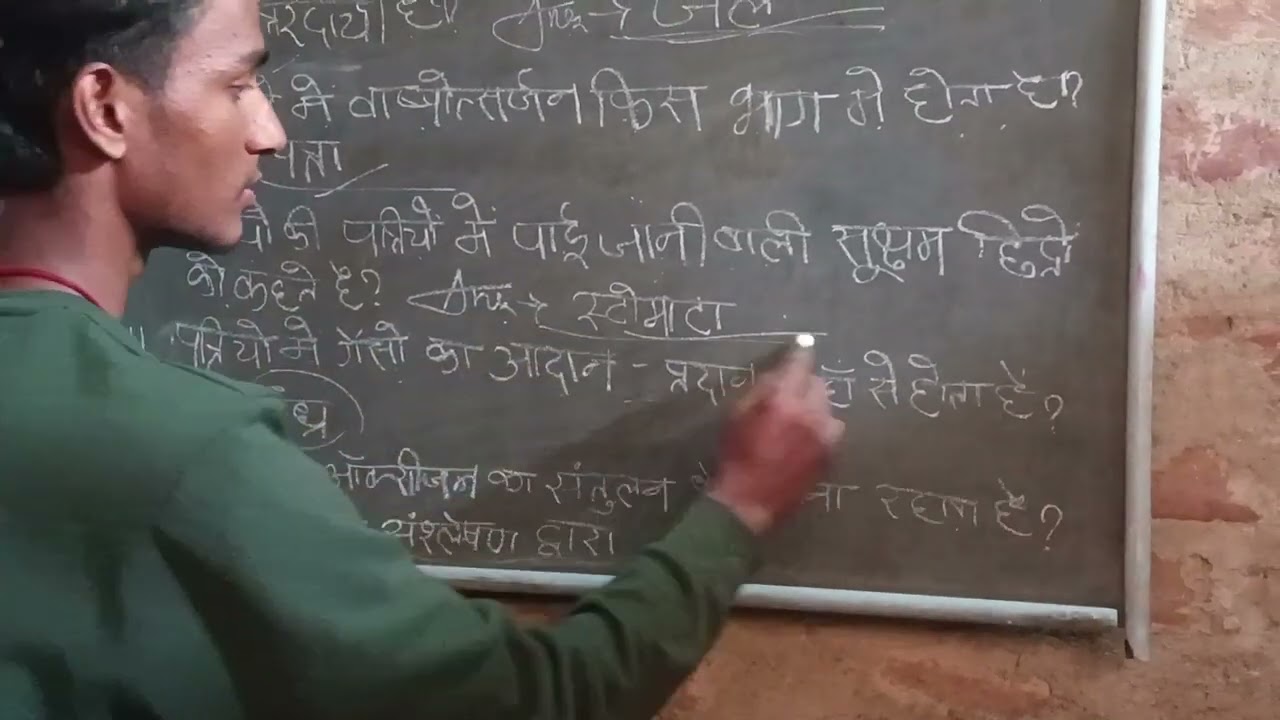 है। Ans→ जल
में वाष्पोत्सर्जन किस भाग में होता है?
की पत्तियों में पाई जानी वाली सूक्ष्म छिद्रों
को कहते है? Ans→ स्टोमाटा
पत्तियों में गैसों का आदान - प्रदान से होता है?
ऑक्सीजन का संतुलन रहता है?
संश्लेषण द्वारा